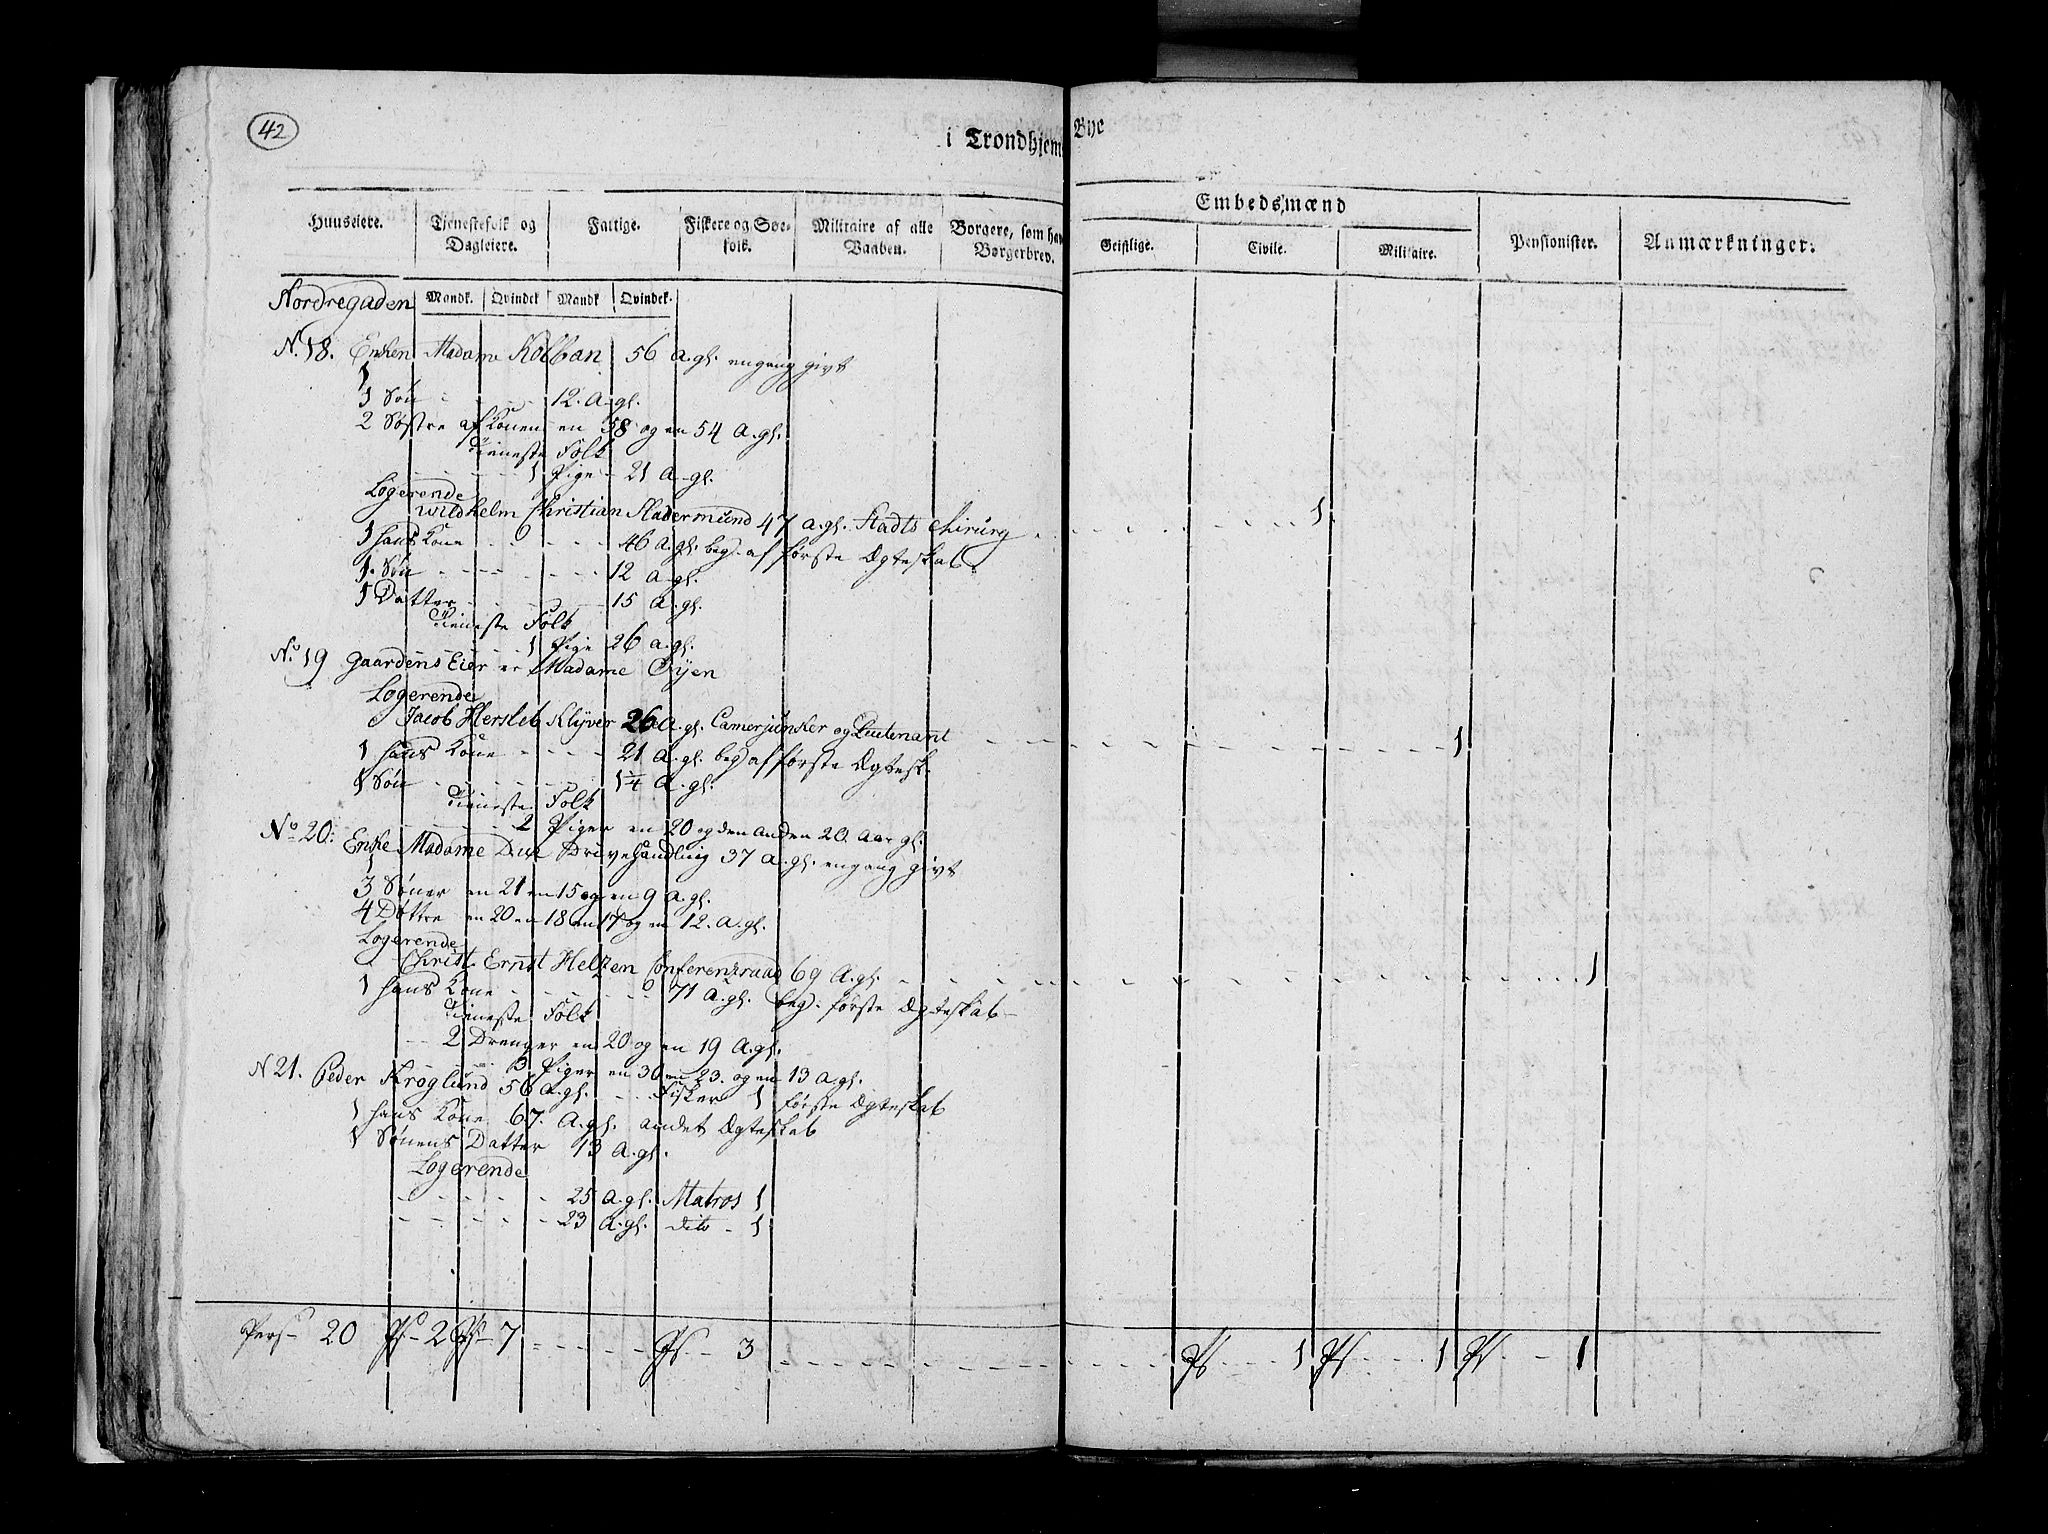 42
i Trondhjems Bye
Embedsmænd
Huuseiere. Tjenestefolk og Dagleiere. Fattige. Fiskere og Søefolk. Militaire af alle Vaaben. Borgere, som have Borgerbrev. Geistlige. Civile. Militaire. Pensionister. Anmærkninger.
Nordregaden Mandk. Qvindek Mandk Qvindek.
N. 18. Enken Madame Kolban 56 A. gl. engang givt
1
1 Søn - - - - 12. A. gl.
2 Søstre af Konen en 58 og en 54 A. gl.
Tieneste Folk
- - - - 1 Pige - 21 A. gl.
Logerende
Wildhelm Christian Stadermund 47 A. gl. Stadts Chirurg - - - - - 1
1 hans Kone - - - - 46 A. gl. beg. af første Ægteskab.
1. Søn - - - - - - 12 A. gl.
1 Datter - - - - - 15 A. gl.
Tieneste Folk
- - - - 1 Pige 26 A. gl.
No. 19 Gaardens Eier er Madame Öyen
Logerende
Jacob Hersleb Klyver 26 A. gl. Camerjunker og Lieutenant - - - - - - - 1
1 hans Kone - - - - 21 A. gl. beg. af første Ægtesk.
1 Søn - - - - - - 1¼ A. gl.
Tieneste Folk
- - - - - 2 Piger en 20 og den anden 20. Aar gl.
No 20. Enke Madame Due Drive Handling 37 A. gl. engang givt
1
3 Sønner en 21 en 15 og en 9 A. gl.
4 Døttre en 20 en 18 en 17 og en 12. A. gl.
Logerende
Christ. Ernst Helzen Conferenzraad 69 A. gl. - - - - - - - - 1
1 hans Kone - - - - - 71 A. gl. beg. første Ægteskab -
Tieneste Folk
- - 2 Drenger en 20 og en 19 A. gl.
- - - - 3 Piger en 30 en 23. og en 13 A. gl.
N 21. Peder Kroglund 56 A. gl. - - - Fisker 1 første Ægteskab
1 hans Kone 67. A. gl. andet Ægteskab
1 Sønens Datter 13 A. gl.
Logerende
- - - - - - 25 A. gl. Matros 1
- - - - - - 23 A. gl. dito - 1
Pers - 20 Ps - 2 Ps - 7 - - - - - Ps - - 3 - - - - - Ps - - - 1 Ps - - - 1 Ps - - 1